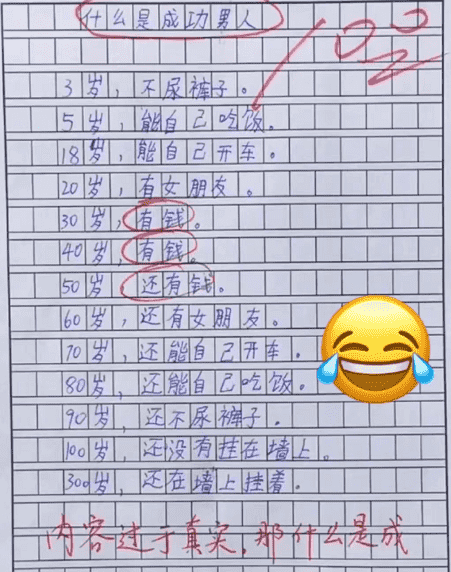 什么是成功男人
3岁，不尿裤子。
5岁，能自己吃饭。
18岁，能自己开车。
20岁，有女朋友。
30岁，有钱。
40岁，有钱。
50岁，还有钱。
60岁，还有女朋友。
70岁，还能自己开车。
80岁，还能自己吃饭。
90岁，还不尿裤子。
100岁，还没有挂在墙上。
300岁，还在墙上挂着。
内容过于真实，那什么是成